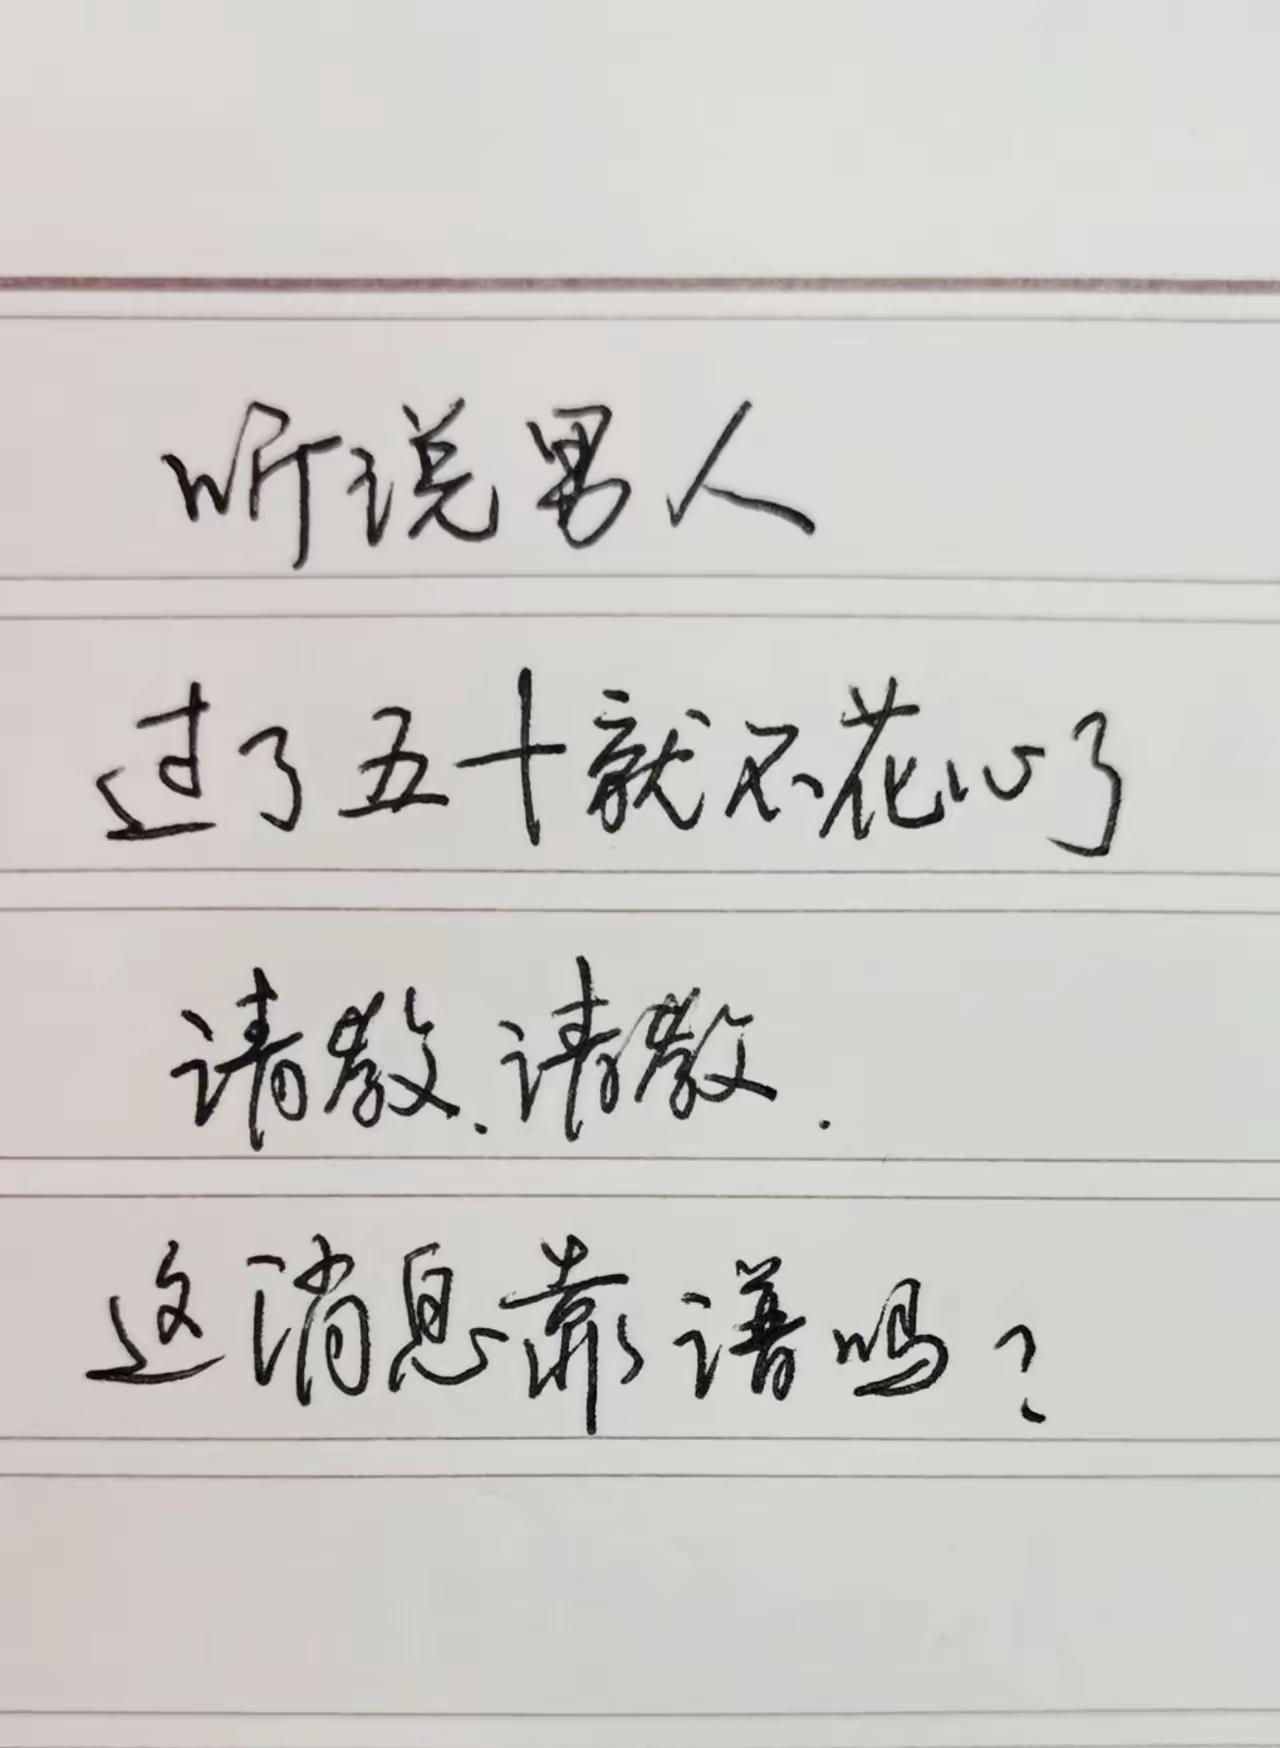 听说男人
过了五十就不花心了
请教.请教.
这消息靠谱吗?